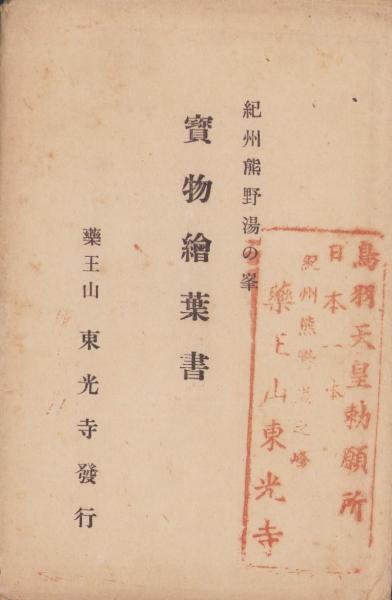 紀州熊野湯の峯
寳物繪葉書
藥王山 東光寺發行
鳥羽天皇勅願所
日本一本
紀州熊野湯之峰
藥王山東光寺